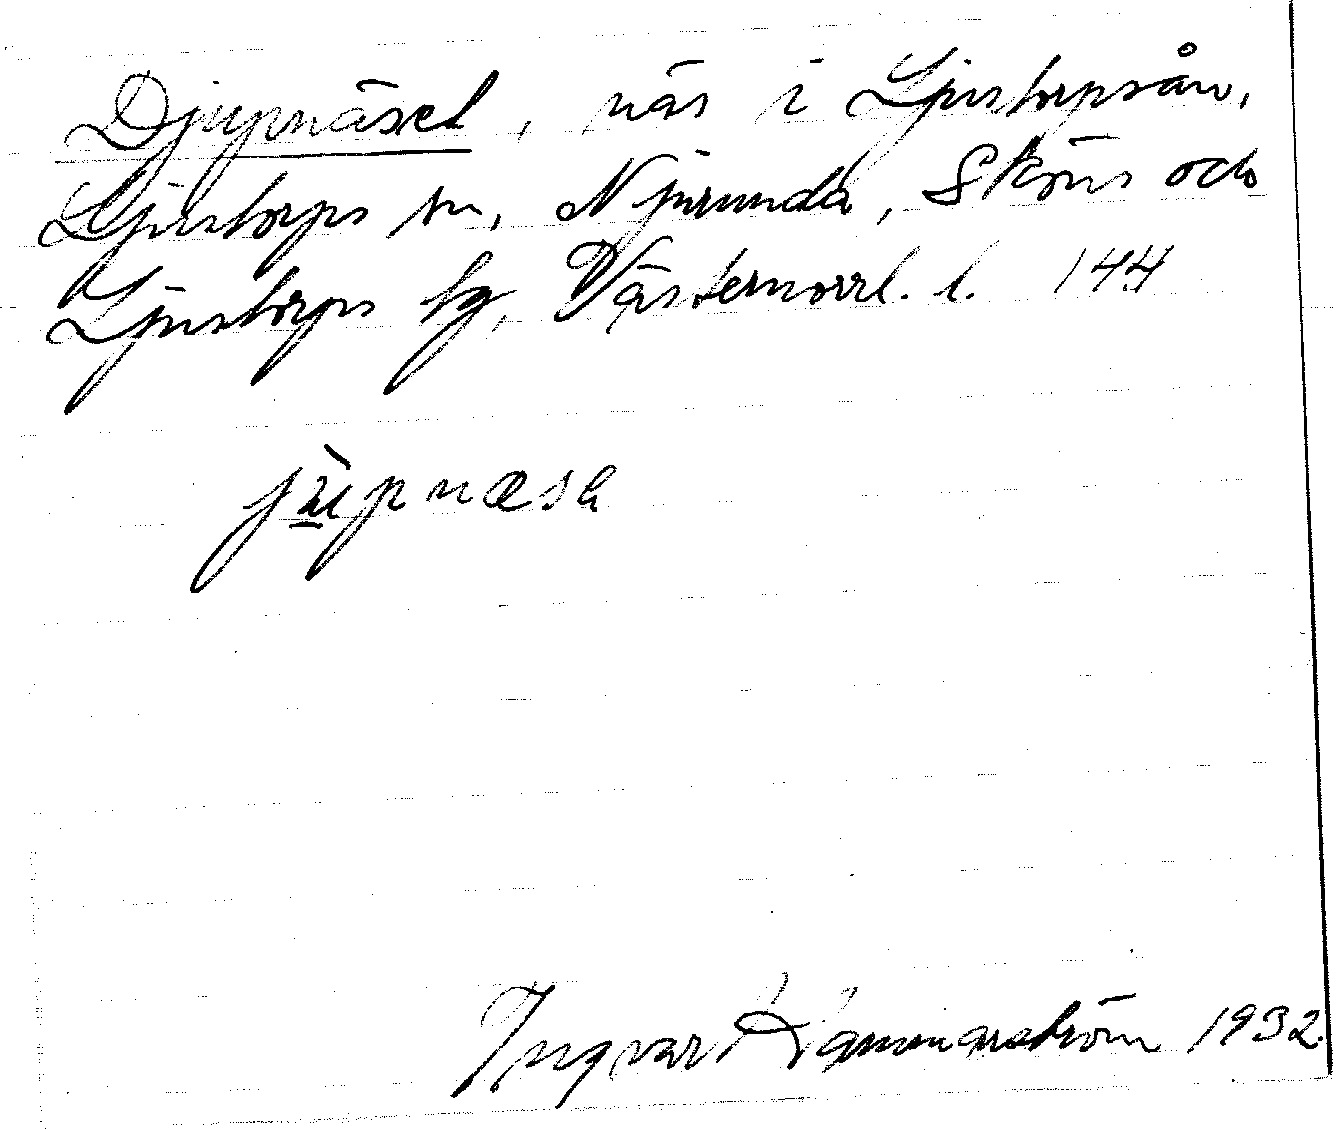 Djupnäset, näs i Ljustorpsån,
Ljustorps sn, Njurunda, Sköns och
Ljustorps tg, Västernorrl. l. 144
jùpnæsɐ
Ingvar Hammarström 1932